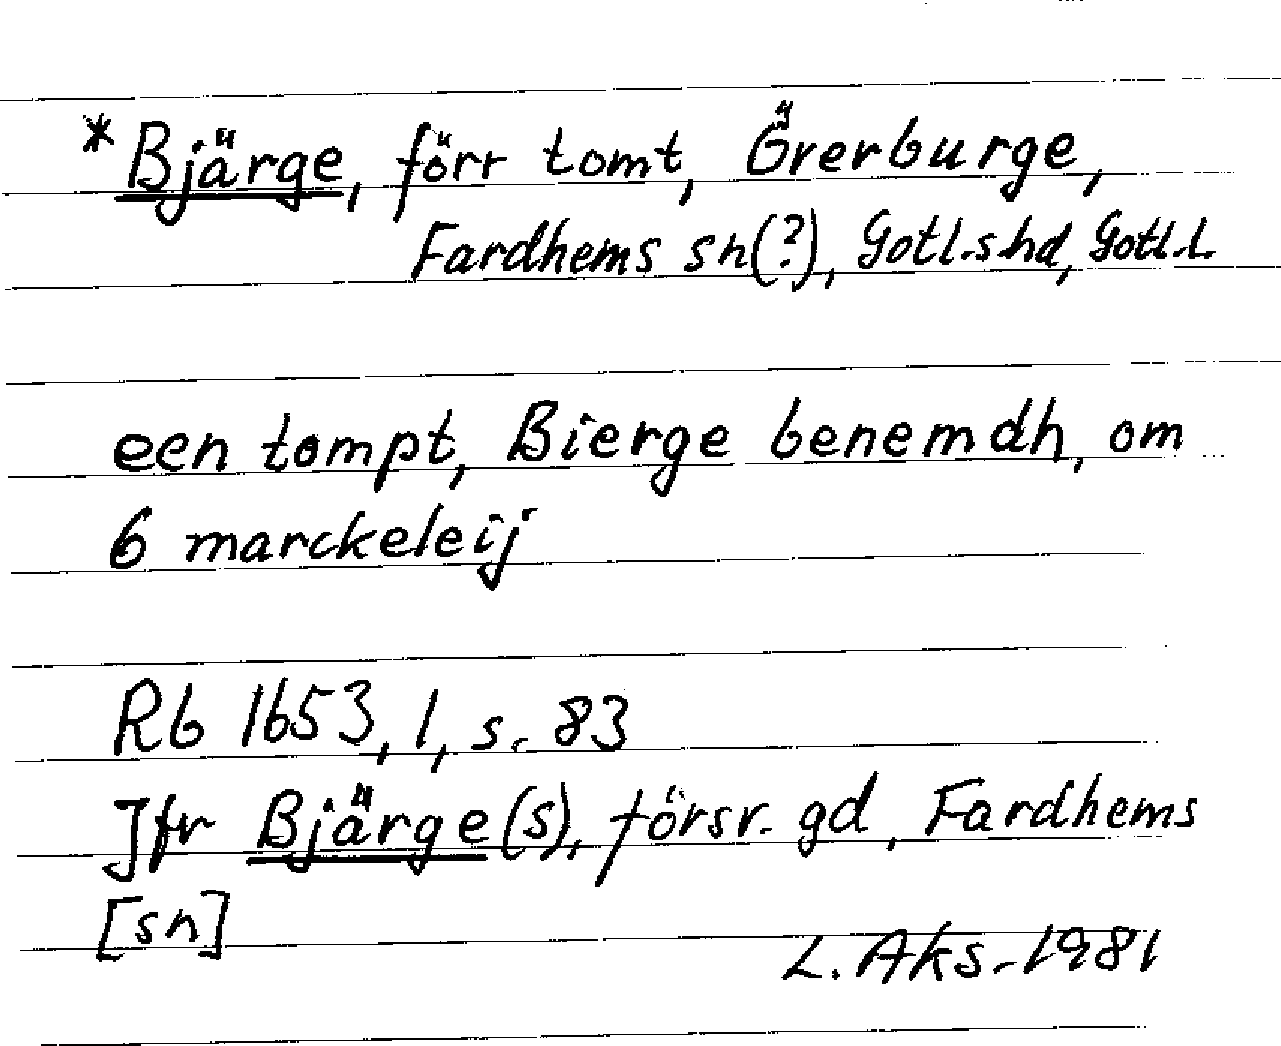 *Bjärge, förr tomt, Örerburge,
Fardhems sn(?), Gotl.s hd, Gotl.L.
een tompt, Bierge benemdh, om
6 marckeleij
Rb 1653, 1, s. 83
Jfr Bjärge(s), försv. gd, Fardhems
[sn]
L. Aks. 1981